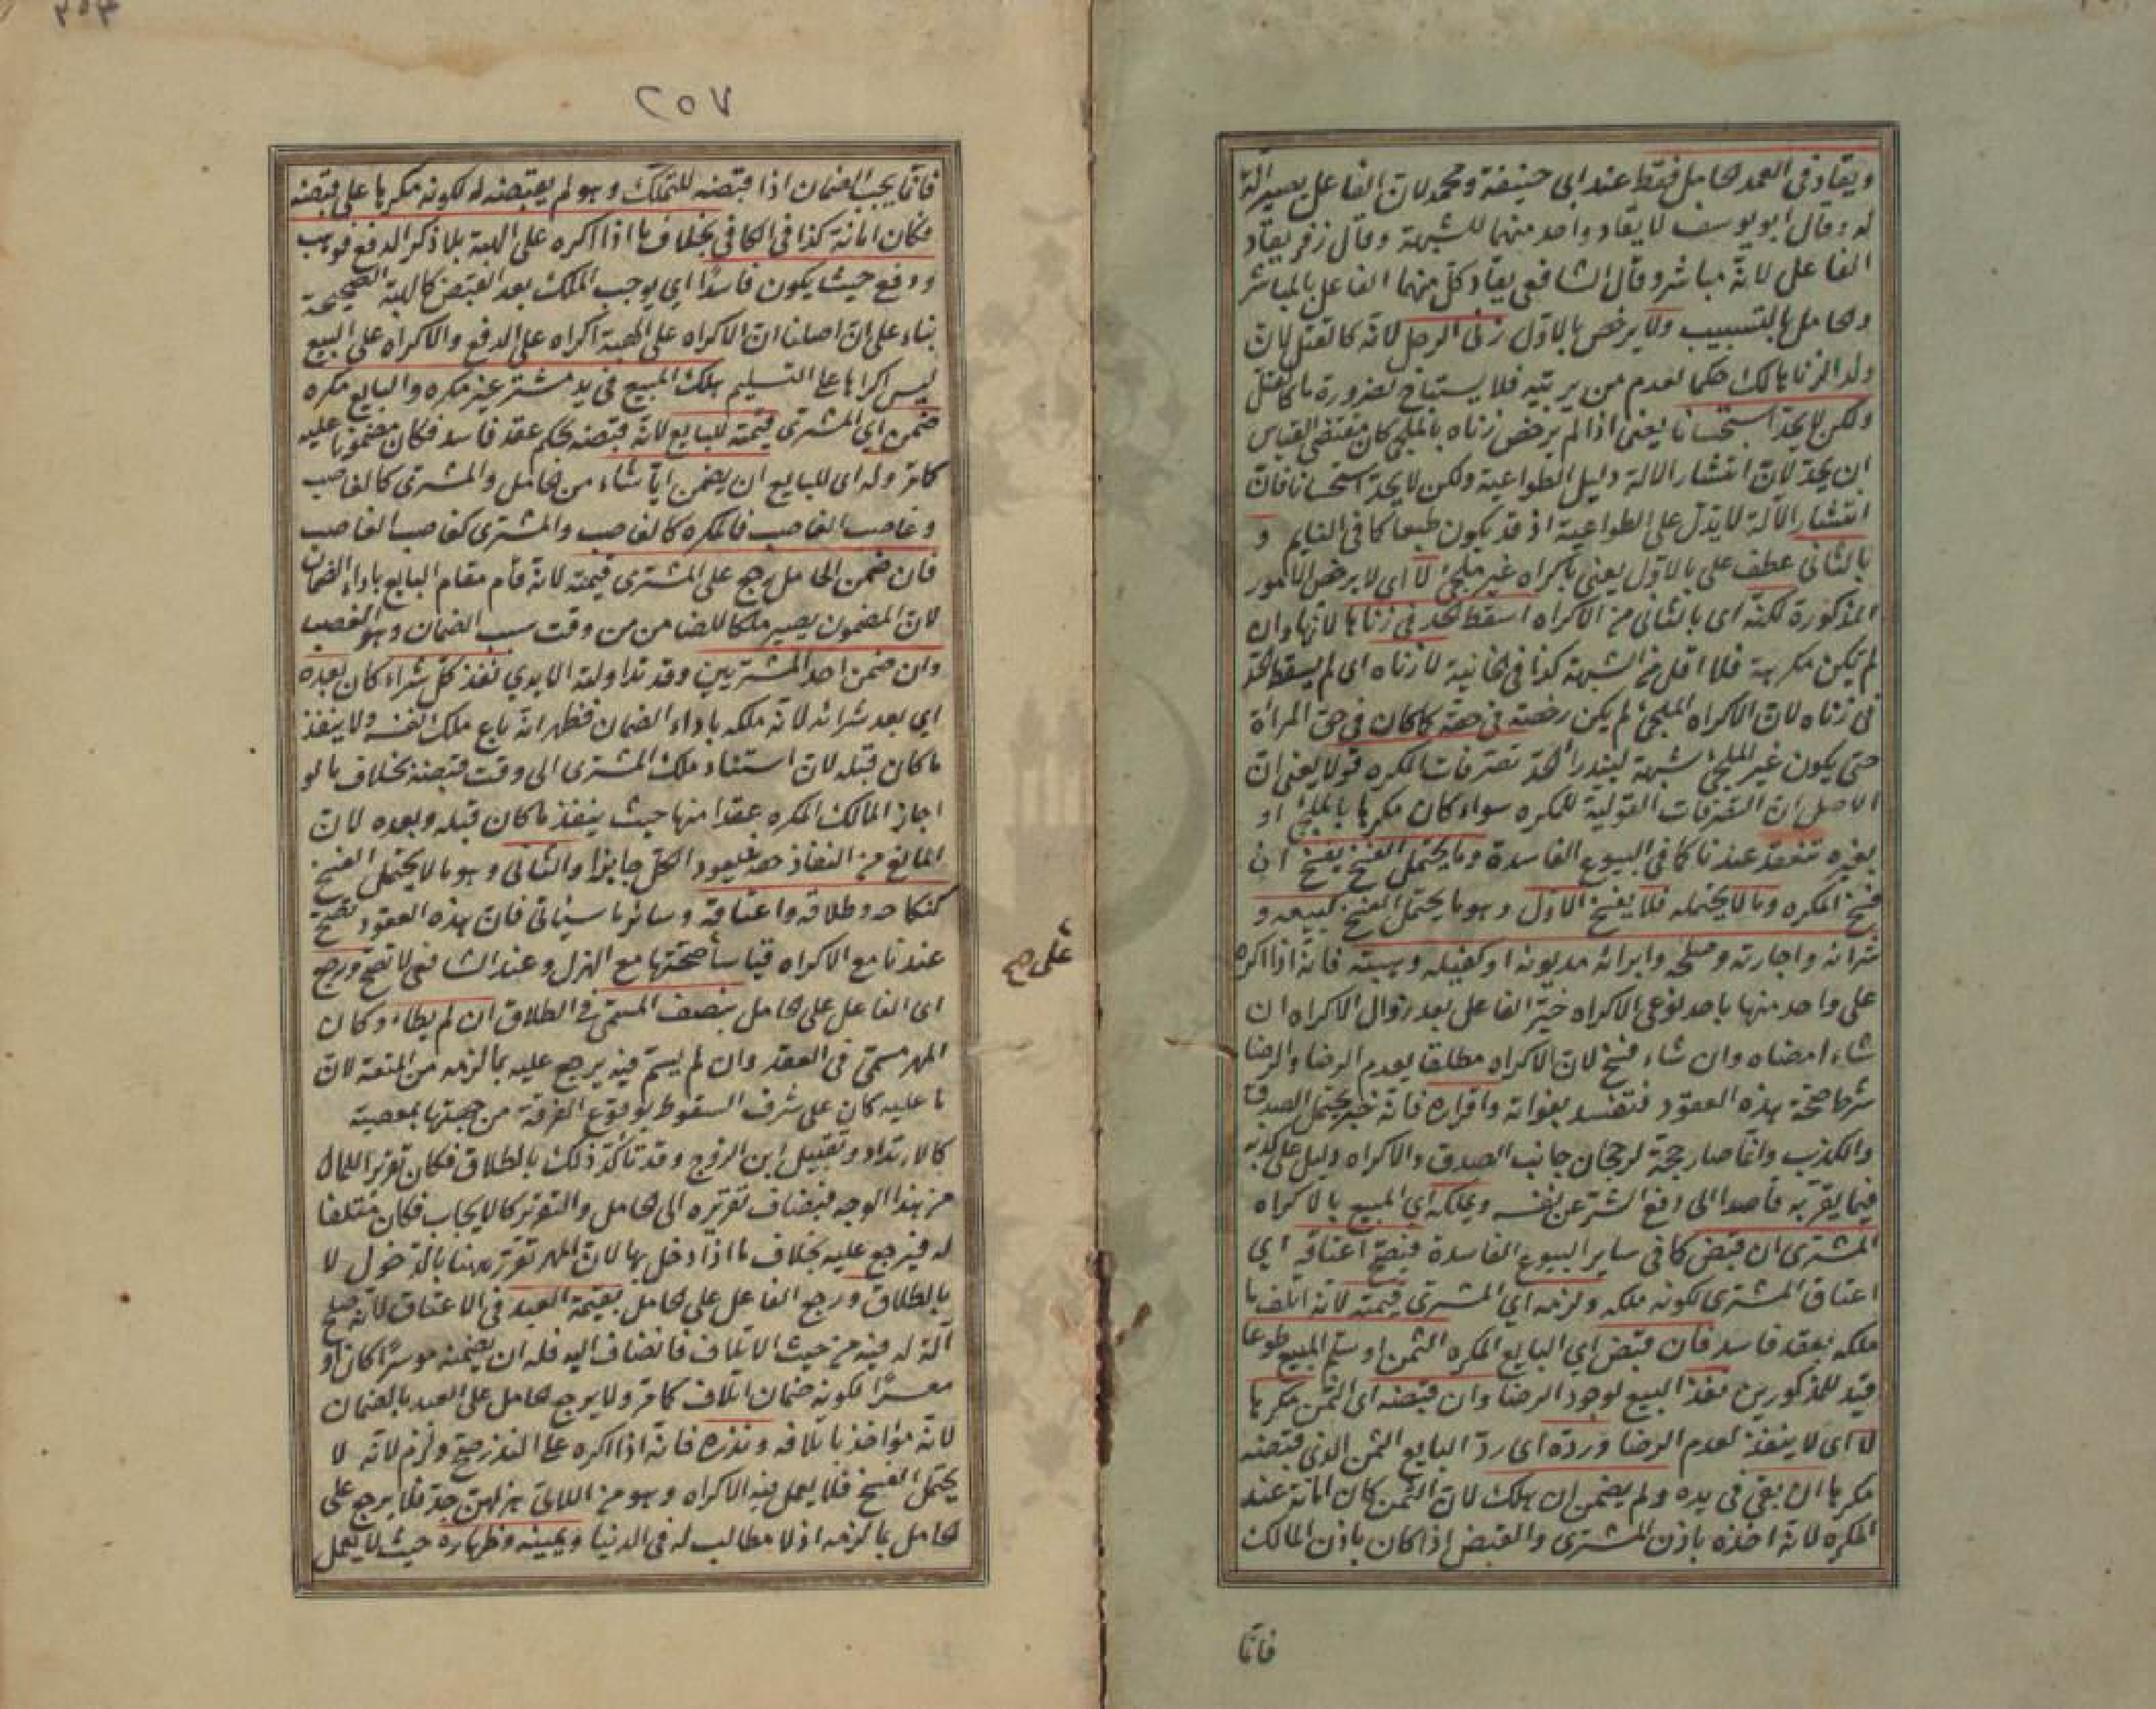 ويقاد فى العمد الحامل فقط عند ابى حنيفة ومحمد لان الفاعل يصير آلة
له وقال ابو يوسف لا يقاد واحد منهما للشبهة وقال زفر يقاد
الفاعل لانه مباشر وقال الشافعى يقاد كل منهما الفاعل بالمباشر
والحامل بالتسبيب ولا يرخص بالاول زنى الرجل لانه كالقتل لان
ولد الزنا هالك حكما لعدم من يربيه فلا يستباح لضرورة ما كالقتل
ولكن لا يحد استحسانا يعنى اذا لم يرخص زناه بالملجئ كان مقتضى القياس
ان يحد لان انتشار الالة دليل الطواعية ولكن لا يحد استحسانا فان
انتشار الآلة لا يدل على الطواعية اذ قد يكون طبعا كما فى النايم و
بالثانى عطف على بالاول يعنى باكراه غير ملجئ لا اى لا يرخص الامور
المذكورة لكنه اى بالثانى من الاكراه اسقط الحد فى زناها لانها وان
لم تكن مكرهة فلا اقل من الشبهة كذا فى الخانية لا زناه اى لم يسقط الحد
فى زناه لان الاكراه الملجئ لم يكن رخصة فى حقه كما كان فى حق المرأة
حتى يكون غير الملجئ شبهة ليندرأ الحد تصرفات المكره قولا يعنى ان
الاصل ان التصرفات القولية للمكره سواء كان مكرها بالملجئ او
بغيره تنعقد عندنا كما فى البيوع الفاسدة وما يحتمل الفسخ يفسخ ان
فسخ المكره وما لا يحتمله فلا يفسخ الاول وهو ما يحتمل الفسخ كبيعه و
شرائه واجارته وصلحه وابرائه مديونه او كفيله وهبته فانه اذا اكره
على واحد منها باحد نوعى الاكراه خير الفاعل بعد زوال الاكراه ان
شاء امضاه وان شاء فسخ لان الاكراه مطلقا يعدم الرضا والرضا
شرط صحة هذه العقود فتفسد بفواته واقراره فانه خبر يحتمل الصدق
والكذب وانما صار حجة لرجحان جانب الصدق والاكراه دليل على كذبه
فيما يقر به قاصدا الى دفع الشر عن نفسه ويملكه اى المبيع بالاكراه
المشترى ان قبض كما فى ساير البيوع الفاسدة فيصح اعتاقه اى
اعتاق المشترى لكونه ملكه ولزمه اى المشترى قيمته لانه اتلف ما
ملكه بعقد فاسد فان قبض اى البايع المكره الثمن او سلم المبيع طوعا
قيد للمذكورين نفذ البيع لوجود الرضا وان قبضه اى الثمن مكرها
لا اى لا ينفذ لعدم الرضا ورده اى رد البايع الثمن الذى قبضه
مكرها ان بقى فى يده ولم يضمن ان هلك لان الثمن كان امانة عند
المكره لانه اخذه باذن المشترى والقبض اذا كان باذن المالك
فانما
٢٥٧
فانما يجب الضمان اذا قبضه للتملك وهو لم يقبضه له لكونه مكرها على قبضه
فكان امانة كذا فى الكافى بخلاف ما اذا اكره على الهبة بلا ذكر الدفع فوهب
ودفع حيث يكون فاسدا اى يوجب الملك بعد القبض كالهبة الصحيحة
بناء على ان اصلنا ان الاكراه على الهبة اكراه على الدفع والاكراه على البيع
ليس اكراها على التسليم هلك المبيع فى يد مشتر غير مكره والبايع مكره
ضمن اى المشترى قيمته للبايع لانه قبضه بحكم عقد فاسد فكان مضمونا عليه
كما مر وله اى للبايع ان يضمن ايا شاء من الحامل والمشترى كالغاصب
وغاصب الغاصب فالمكره كالغاصب والمشترى كغاصب الغاصب
فان ضمن الحامل رجع على المشترى قيمته لانه قام مقام البايع باداء الضمان
لان المضمون يصير ملكا للضامن من وقت سبب الضمان وهو الغصب
وان ضمن احد المشتريين وقد تداولته الايدى نفذ كل شراء كان بعده
اى بعد شرائه لانه ملكه باداء الضمان فظهر انه باع ملك نفسه ولا ينفذ
ما كان قبله لان استناد ملك المشترى الى وقت قبضه بخلاف ما لو
اجاز المالك المكره عقدا منها حيث ينفذ ما كان قبله وبعده لان
المانع من النفاذ حقه فيعود الكل جايزا والثانى وهو ما لا يحتمل الفسخ
كنكاحه وطلاقه واعتاقه وسائر ما سيأتى فان هذه العقود تصح
عندنا مع الاكراه قياسا صحتها مع الهزل وعند الشافعى لا تصح ورجع
على صح
اى الفاعل على الحامل بنصف المسمى فى الطلاق ان لم يطاء وكان
المهر مسمى فى العقد وان لم يسم فيه يرجع عليه بما لزمه من المتعة لان
ما عليه كان على شرف السقوط بوقوع الفرقة من جهتها بمعصية
كالارتداد وتقبيل ابن الزوج وقد تأكد ذلك بالطلاق فكان تقريرا للمال
من هذا الوجه فيضاف تقريره الى الحامل والتقرير كالايجاب فكان متلفا
له فيرجع عليه بخلاف ما اذا دخل بها لان المهر تقرر ههنا بالدخول لا
بالطلاق ورجع الفاعل على الحامل بقيمة العبد فى الاعتاق لانه صلح
آلة له فيه من حيث الاتلاف فانضاف اليه فله ان يضمنه موسرا كان او
معسرا لكونه ضمان اتلاف كما مر ولا يرجع الحامل على العبد بالضمان
لانه مؤاخذ باتلافه ونذره فانه اذا اكره على النذر صح ولزم لانه لا
يحتمل الفسخ فلا يعمل فيه الاكراه وهو من اللاتى هزلهن جد فلا يرجع على
الحامل بما لزمه اذ لا مطالب له فى الدنيا ويمينه وظهاره حيث لا يعمل